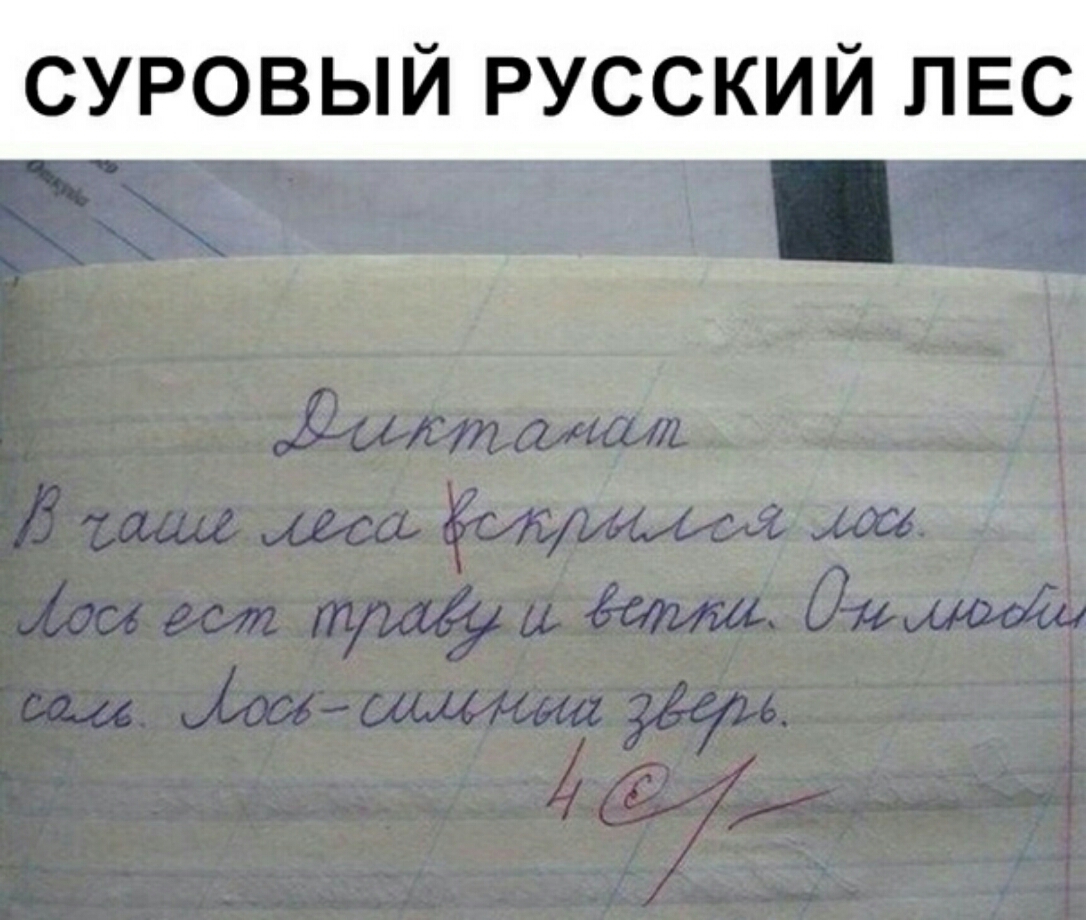 СУРОВЫЙ РУССКИЙ ЛЕС
Откуда
Диктанат
В чаше леса вскрылся лось.
Лось ест траву и ветки. Он люби
соль. Лось-сильныи зверь.
4